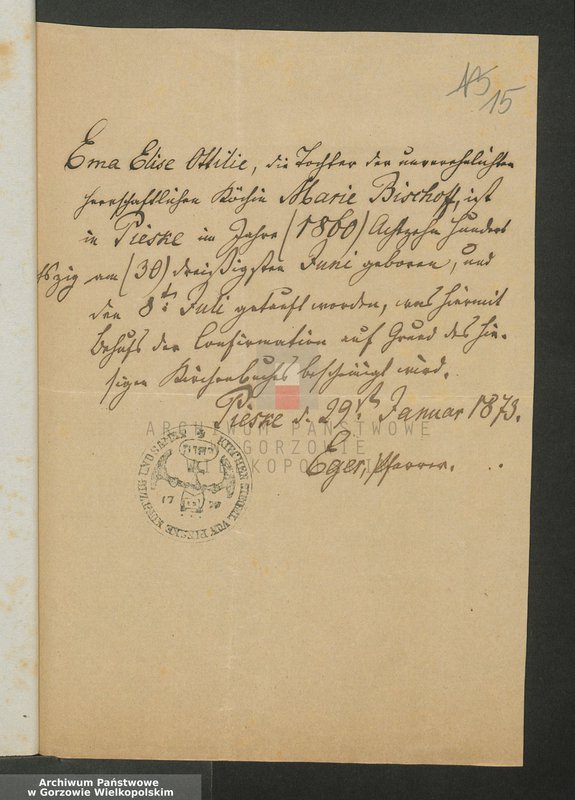 15
15
Ema Elise Ottilie, die Tochter der unverehelichten
herrschaftlichen Köchin Marie Bischoff, ist
in Pieske im Jahre (1860) Achtzehn hundert
sszig am (30) dreißigsten Juni geboren, und
den 8ten Juli getauft worden, was hiermit
behufs der Confirmation auf Grund des hie-
sigen Kirchenbuches bescheinigt wird.
Pieske d. 29t. Januar 1873.
Eger, Pfarrer.
KIRCHEN SIEGEL VON PIESKE UND
17
ARCHIWUM PAŃSTWOWE
W GORZOWIE
WIELKOPOLSKIM
Archiwum Państwowe
w Gorzowie Wielkopolskim